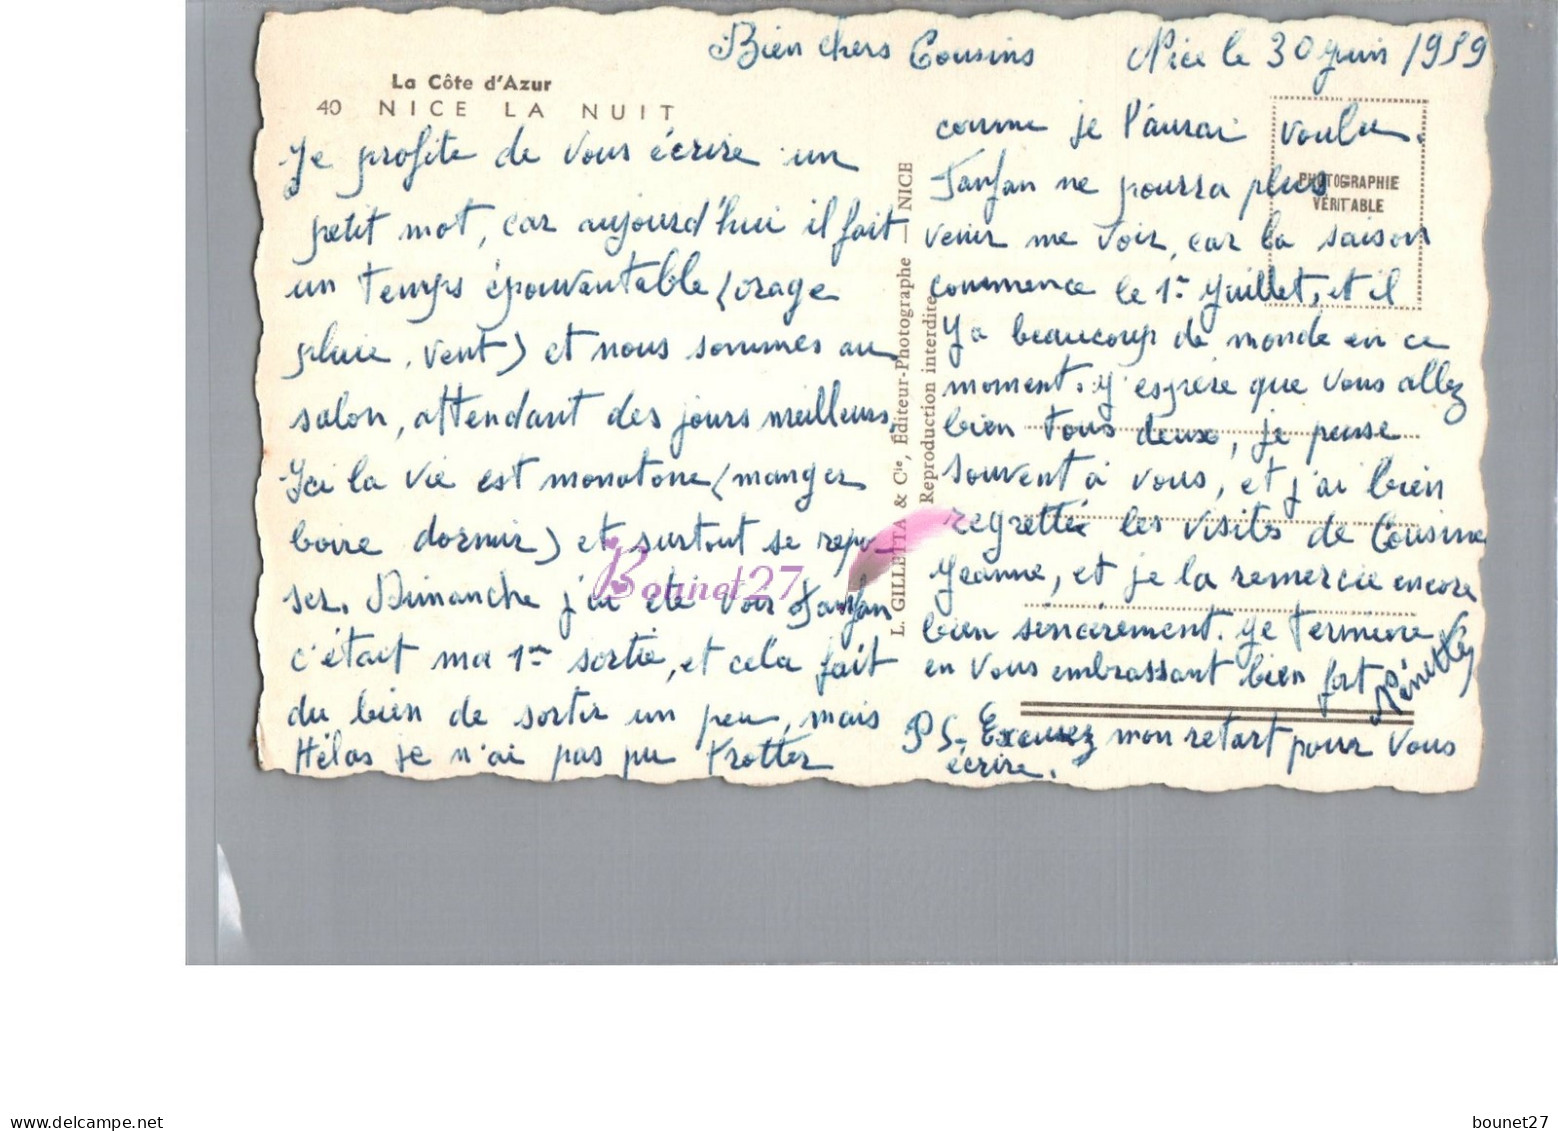 Bien chers Cousins
Nice le 30 juin 1959
La Côte d'Azur
40 NICE LA NUIT
Je profite de vous écrire un
petit mot, car aujourd'hui il fait
un temps épouvantable (orage
pluie, vent) et nous sommes au
salon, attendant des jours meilleurs.
Ici la vie est monotone (manger
boire dormir) et surtout se repo-
ser. Dimanche j'ai été voir Fanfan
c'était ma 1re sortie, et cela fait
du bien de sortir un peu, mais
Hélas je n'ai pas pu trotter
L. GILLETTA & Cie, Éditeur-Photographe — NICE
Reproduction interdite
PHOTOGRAPHIE
VÉRITABLE
comme je l'aurai voulu.
Fanfan ne pourra plus
venir me voir, car la saison
commence le 1er Juillet, et il
y a beaucoup de monde en ce
moment. J'espère que vous allez
bien tous deux, je pense
souvent à vous, et j'ai bien
regrettée les visites de Cousine
Jeanne, et je la remercie encore
bien sincèrement. Je termine
en vous embrassant bien fort
Nénette
PS. Excusez mon retart pour vous
écrire.
Bounet27
delcampe.net
bounet27